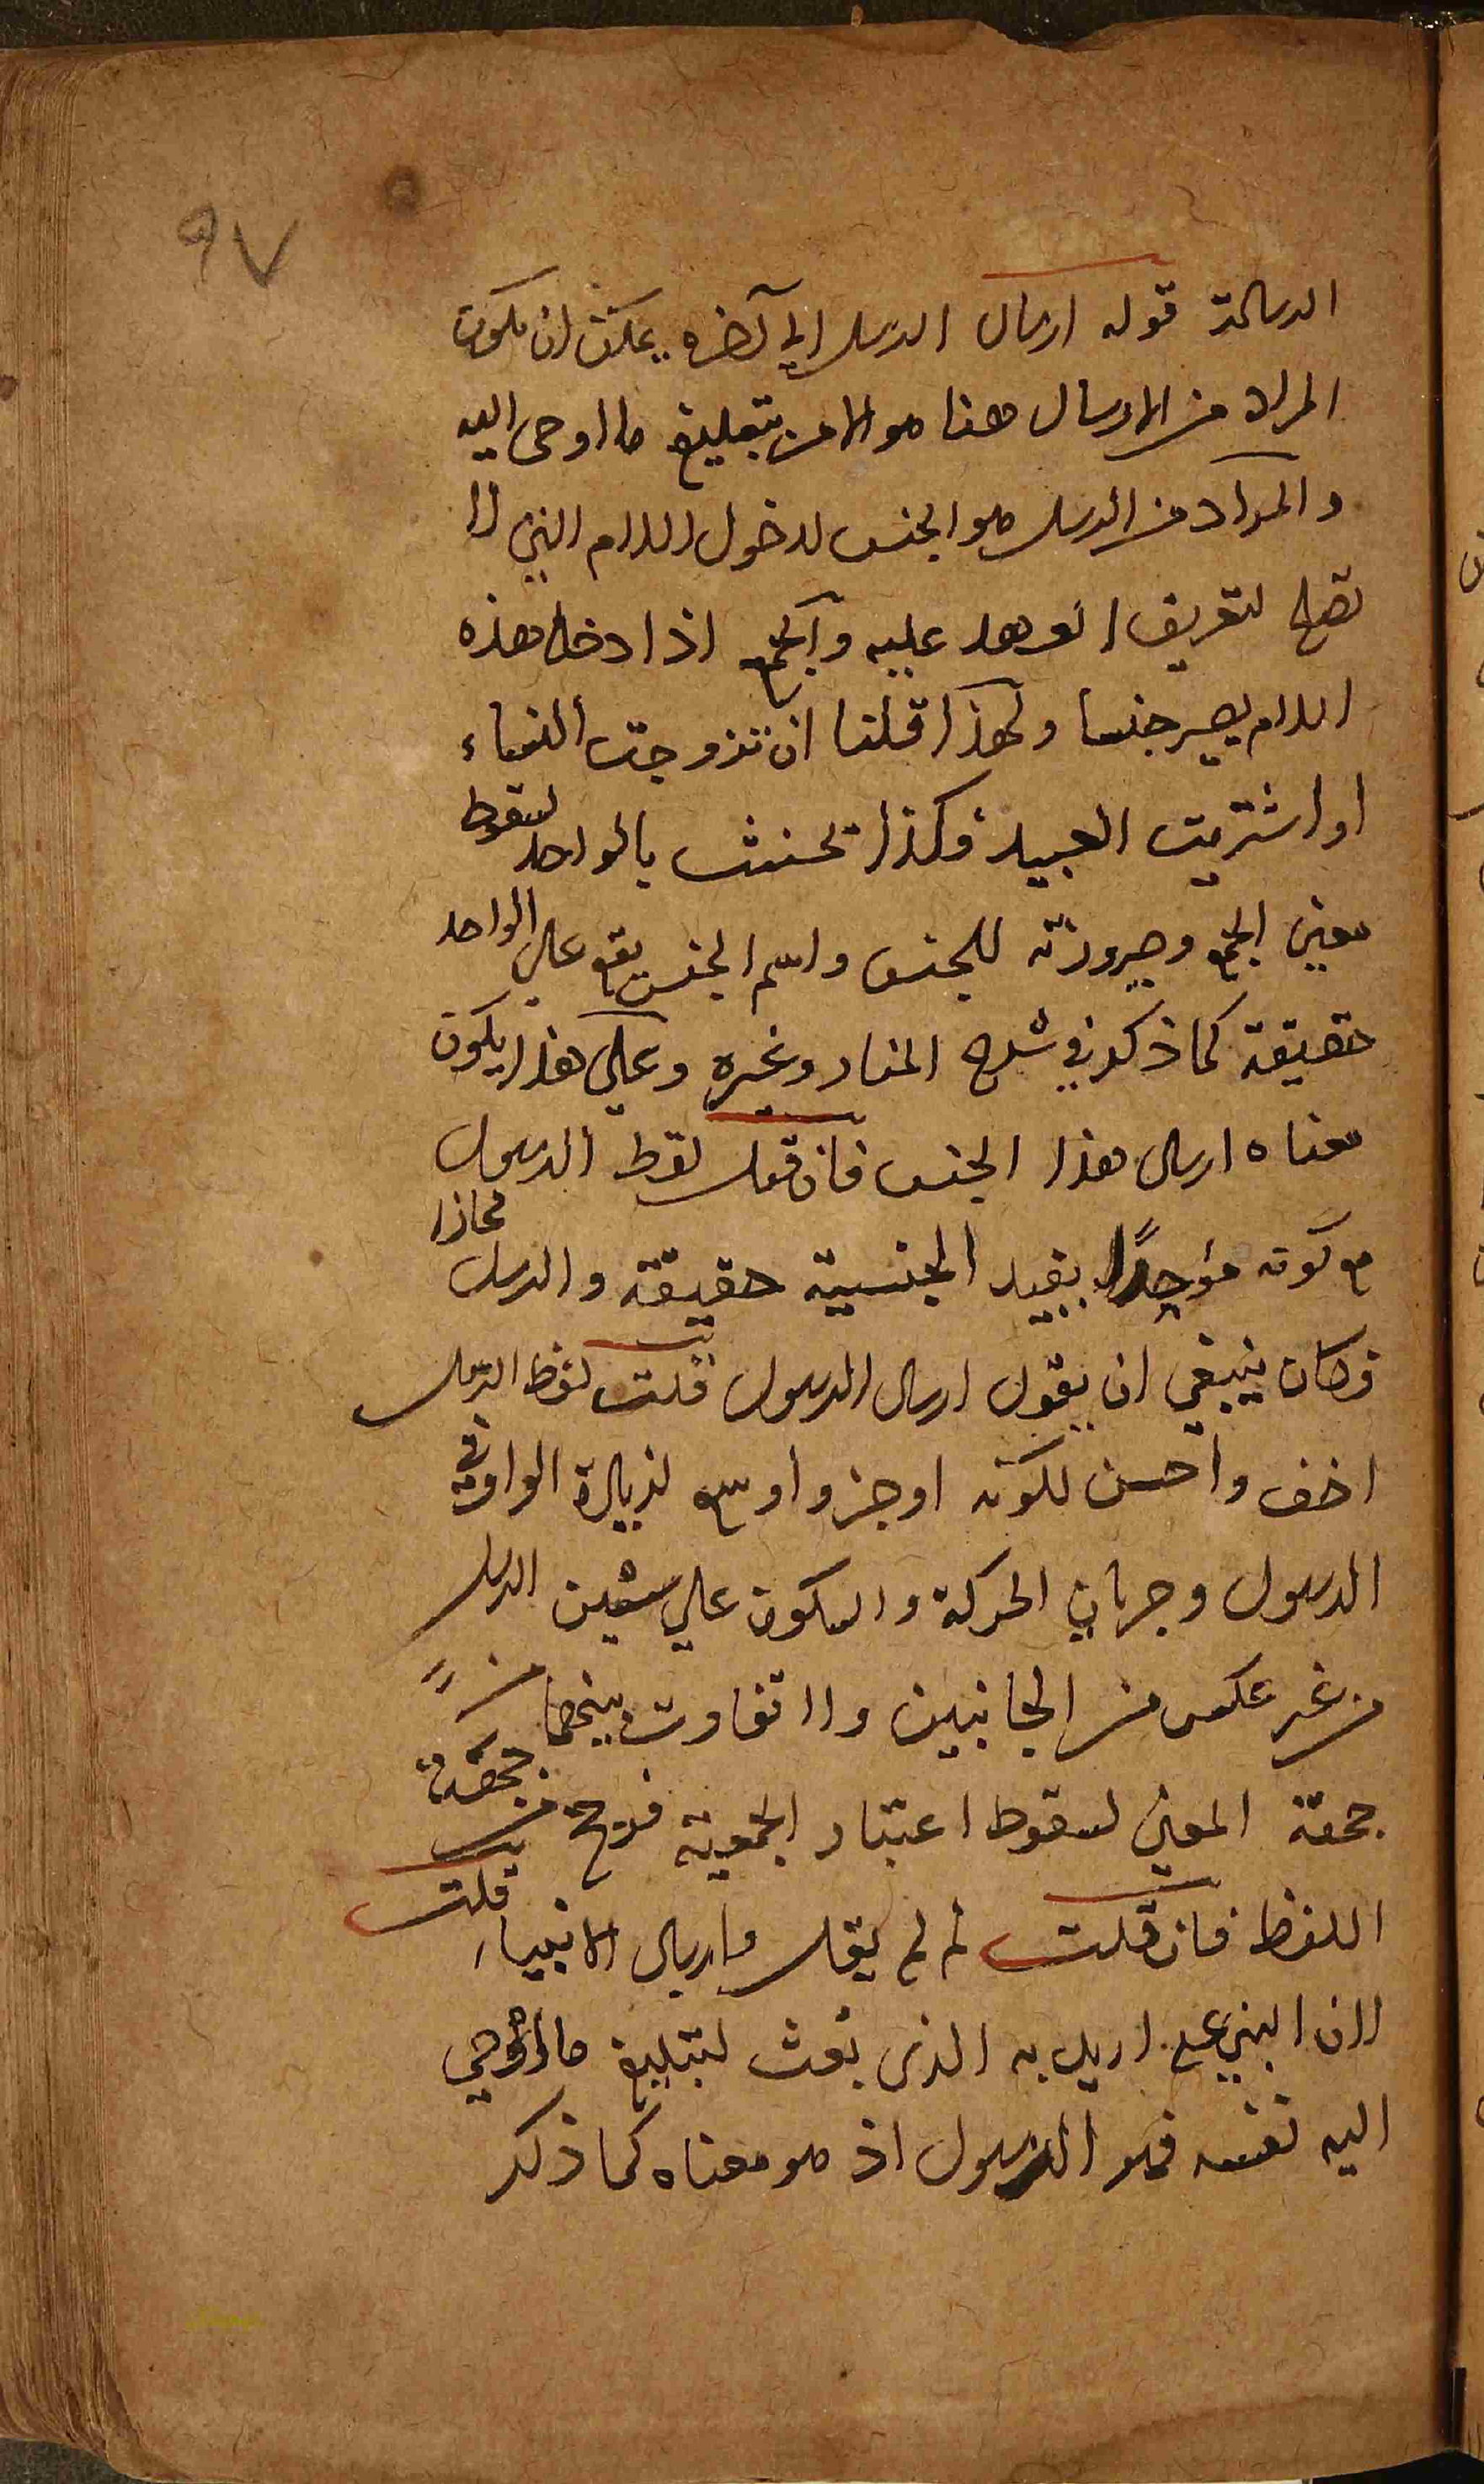 ٩٧
الرسالة قوله ارسال الرسل الي آخره يمكن ان يكون
المراد من الارسال هنا هو الامر بتبليغ ما اوحى اليه
والمراد من الرسل هو الجنس لدخول اللام التي لا
تصلح لتعريف العهد عليه والجمع اذا دخل هذه
اللام يصير جنسا ولهذا قلنا ان تزوجت النساء
او اشتريت العبيد فكذا تحنث بالواحد لسقوط
معنى الجمع وصيرورته للجنس واسم الجنس يقع علي الواحد
حقيقة كما ذكر في شرح المنار وغيره وعلي هذا يكون
معناه ارسال هذا الجنس فان قيل لفظ الرسول
مع كونه موجدا يفيد الجنسية حقيقة والرسل مجازا
فكان ينبغي ان يقول ارسال الرسول قلت لفظ الرسل
اخف واحسن لكونه اوجز واوسع لزيادة الواو في
الرسول وجريان الحركة والسكون علي سين الرسل
من غير عكس من الجانبين ولا تفاوت بينهما من
جهة المعنى لسقوط اعتبار الجمعية فرجح من جهة
اللفظ فان قلت لم لم يقل وارسال الانبياء قلت
لان النبي عم اريد به الذى بعث لتبليغ ما اوحي
اليه نفسه فهو الرسول اذ هو معناه كما ذكر